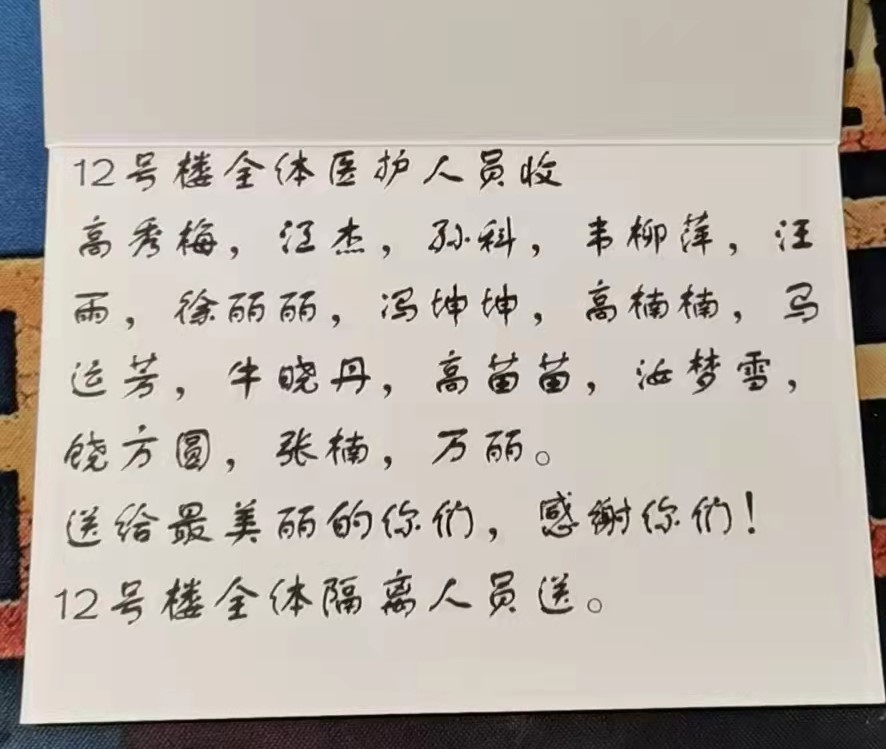 12号楼全体医护人员收
高秀梅，汪杰，孙科，韦柳萍，汪
雨，徐丽丽，冯坤坤，高楠楠，马
运芳，牛晓丹，高苗苗，汝梦雪，
饶方圆，张楠，万丽。
送给最美丽的你们，感谢你们！
12号楼全体隔离人员送。